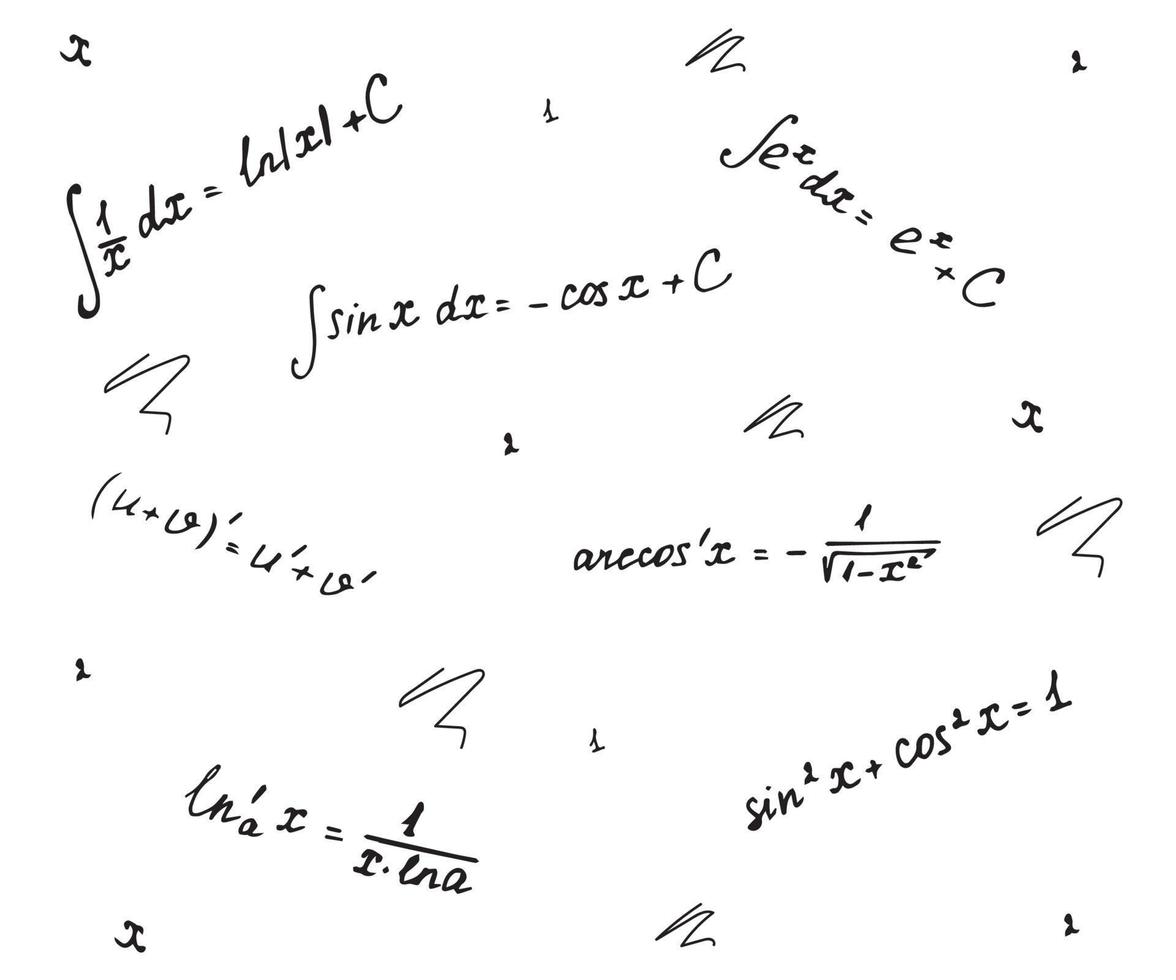 x
2
1
∫ 1/x dx = ln|x| + C
∫e^x dx = e^x + C
∫ sin x dx = - cos x + C
x
2
(u+v)' = u' + v'
arccos'x = - 1/√(1-x²)
2
1
sin² x + cos² x = 1
ln'ₐ x = 1/(x · ln a)
x
2